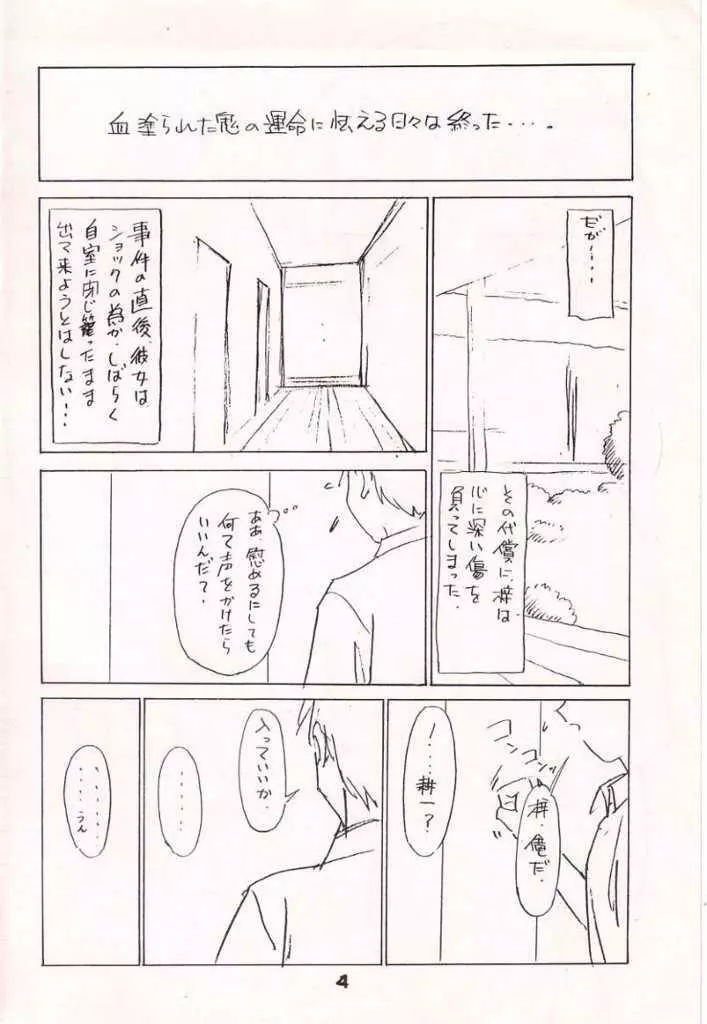 血塗られた鬼の運命に怯える日々は終った・・・。
だが・・・・
その代償に、梓は
心に深い傷を
負ってしまった。
事件の直後、彼女は
ショックの為か、しばらく
自室に閉じ籠ったまま
出て来ようとはしない!・・
ああ、慰めるにしても
何て声をかけたら
いいんだて・
コン
コン
梓、俺だ。
!・・・耕一?
入っていいか。
・・・・・
・・・・・・
・・・・うん
4